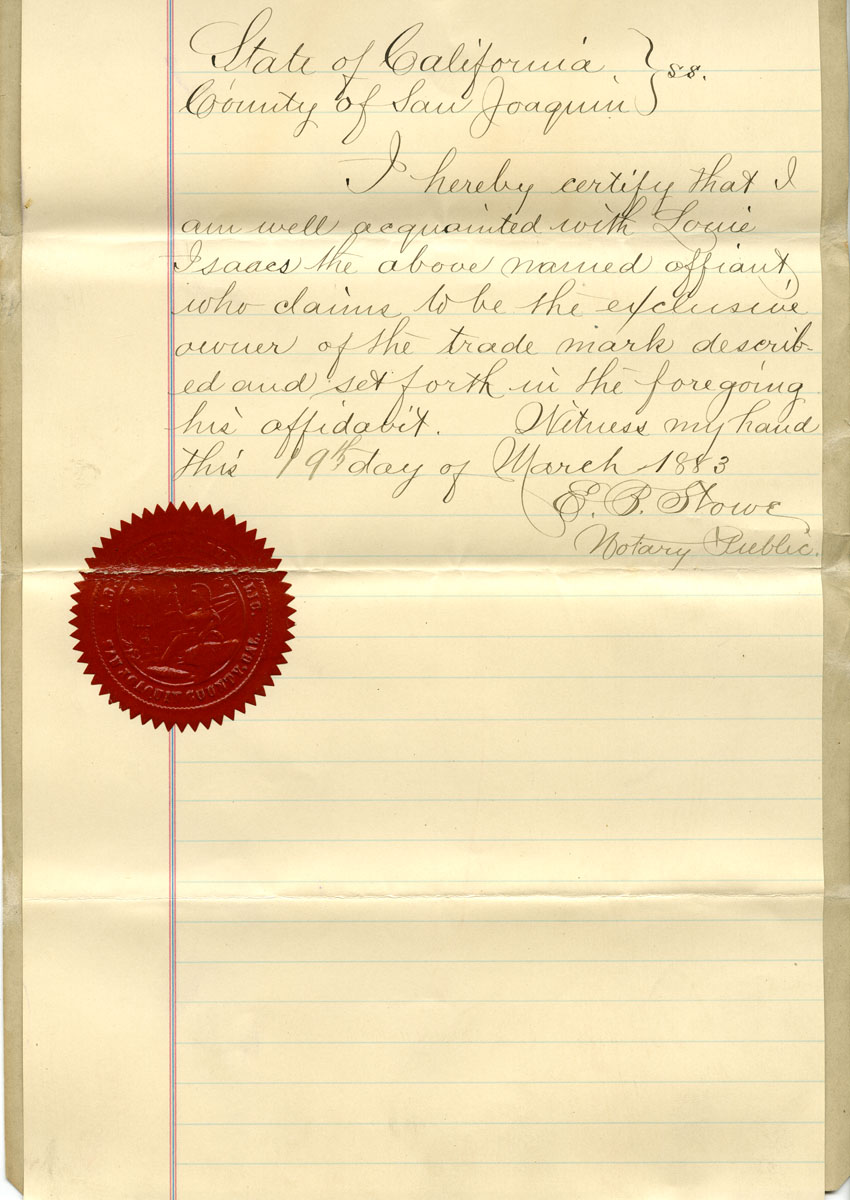 State of California } ss.
County of San Joaquin }
I hereby certify that I
am well acquainted with Louie
Isaacs the above named affiant,
who claims to be the exclusive
owner of the trade mark describ-
ed and set forth in the foregoing
his affidavit. Witness my hand
this 19th day of March 1883
E. P. Stowe
Notary Public.
SAN JOAQUIN COUNTY, CAL.